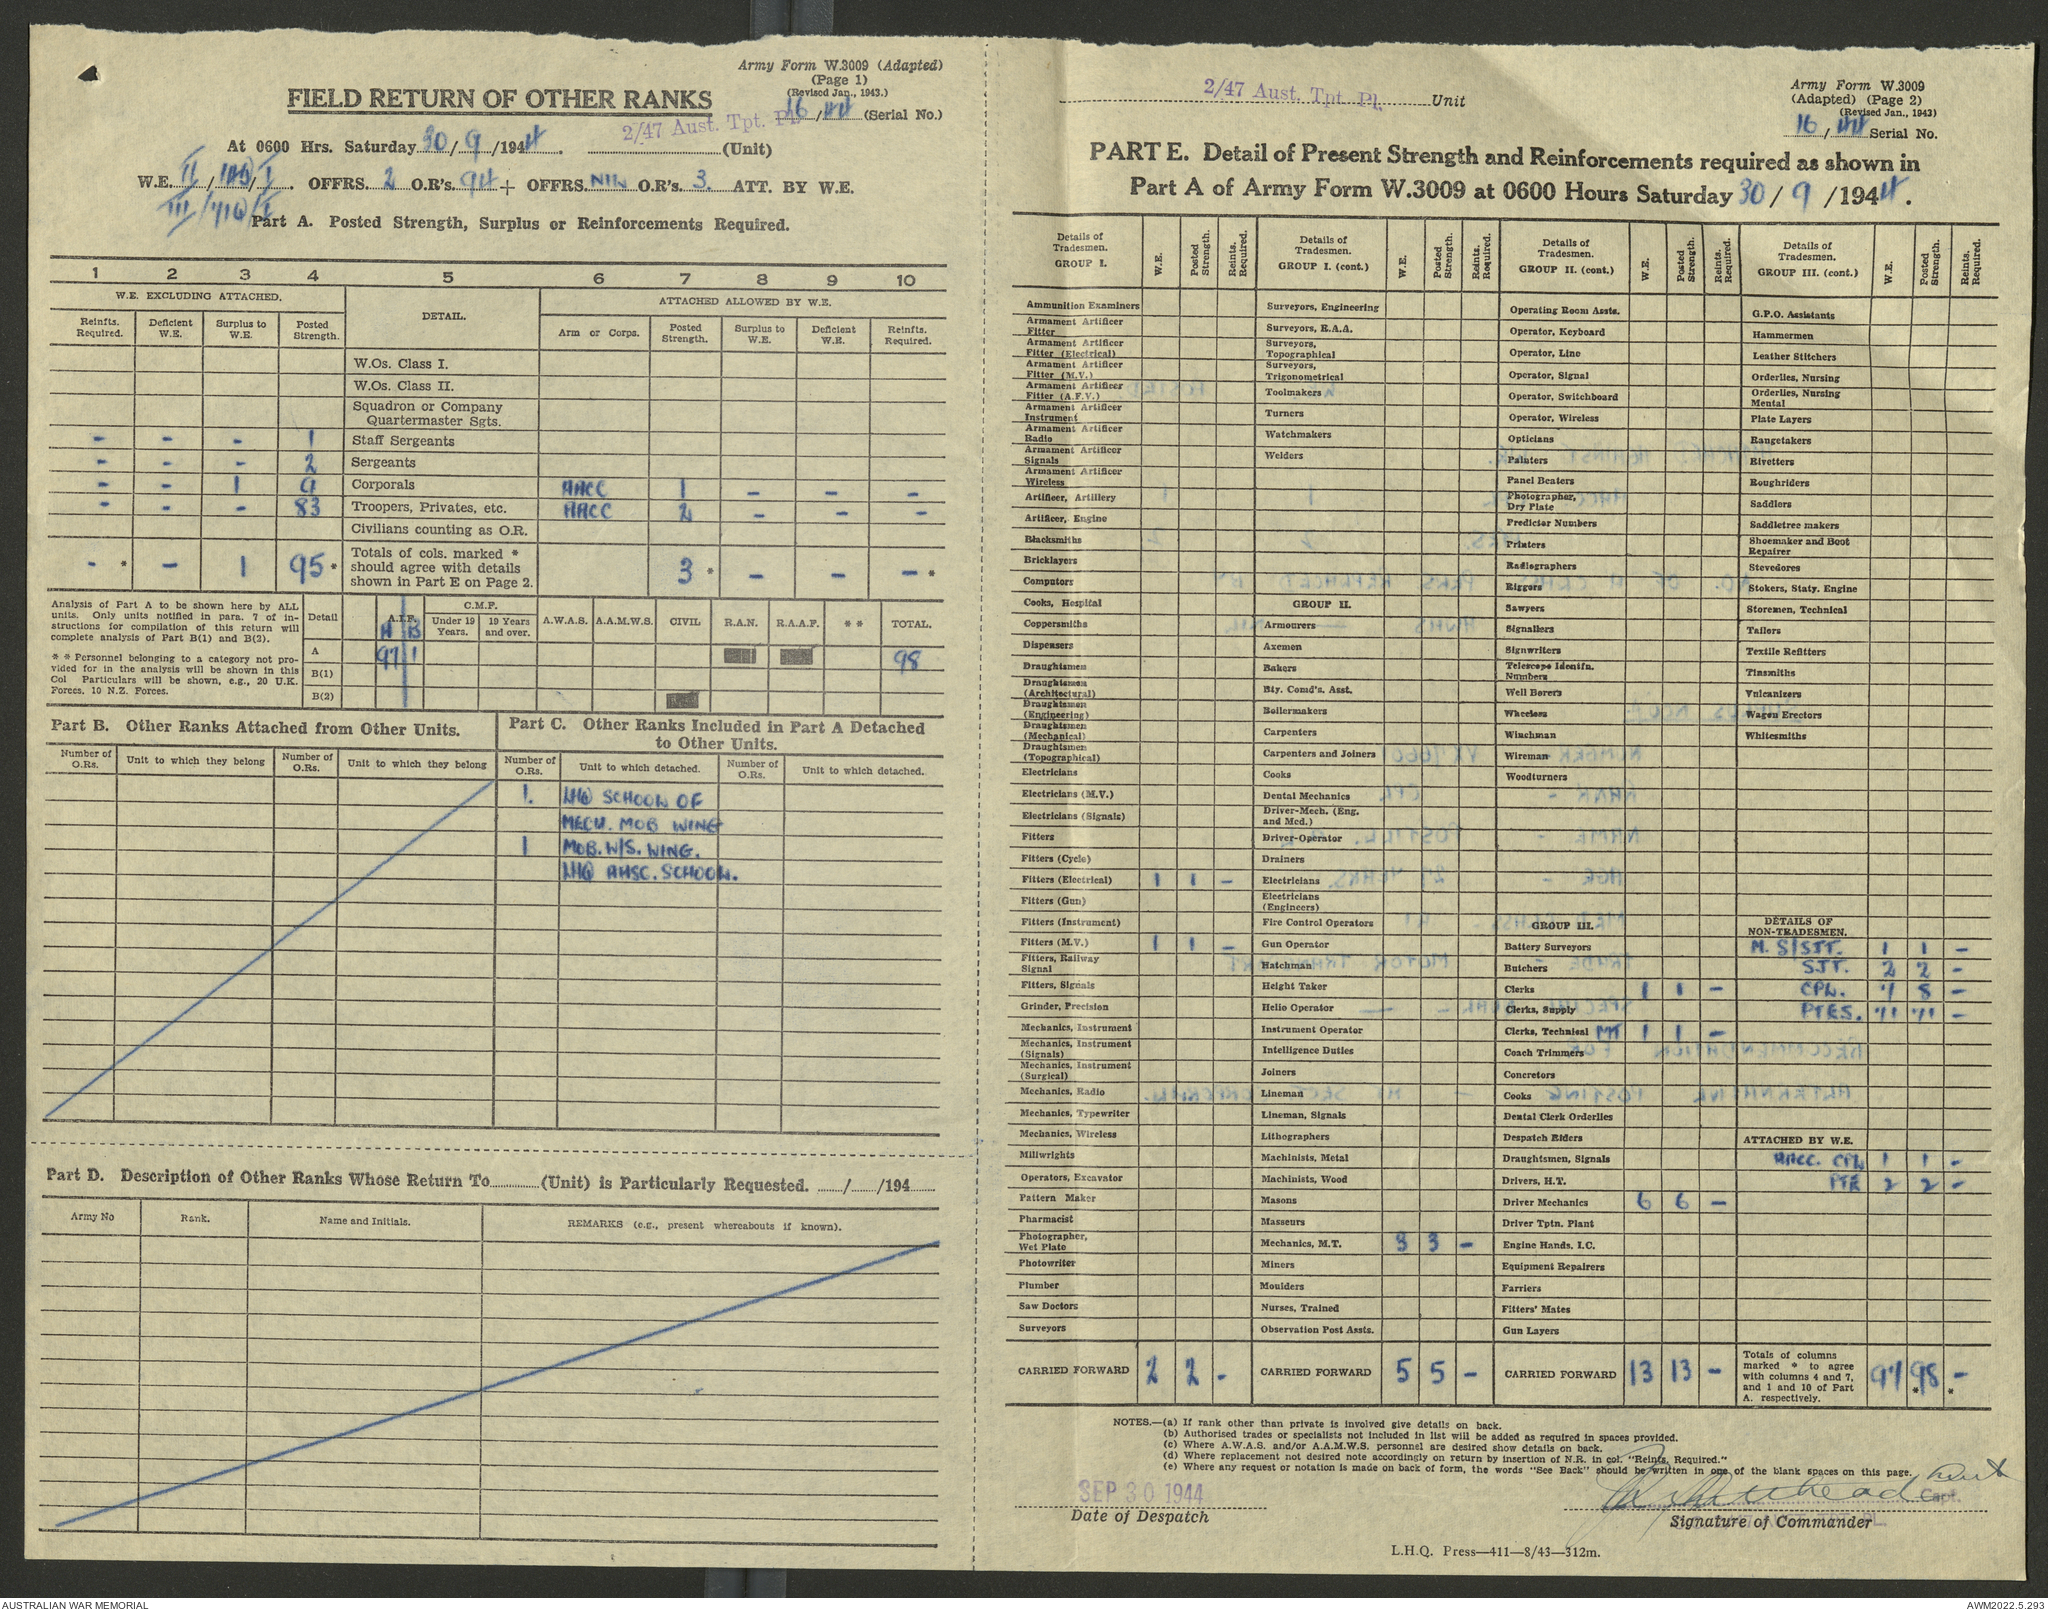 Army Form W.3009 (Adapted)
(Page 1)
(Revised Jan., 1943.)
FIELD RETURN OF OTHER RANKS
16/44 (Serial No.)
At 0600 Hrs. Saturday 30/9/1944. 2/47 Aust. Tpt. Pl. (Unit)
W.E. II/ /I. OFFRS. 2 O.R's. 94 + OFFRS. NIL O.R's. 3. ATT. BY W.E.
III/
Part A. Posted Strength, Surplus or Reinforcements Required.
1 2 3 4 5 6 7 8 9 10
W.E. EXCLUDING ATTACHED. DETAIL. ATTACHED ALLOWED BY W.E.
Reinfts. Required. Deficient W.E. Surplus to W.E. Posted Strength. Arm or Corps. Posted Strength. Surplus to W.E. Deficient W.E. Reinfts. Required.
W.Os. Class I.
W.Os. Class II.
Squadron or Company Quartermaster Sgts.
- - - 1 Staff Sergeants
- - - 2 Sergeants
- - 1 9 Corporals AACC 1 - - -
- - - 83 Troopers, Privates, etc. AACC 2 - - -
Civilians counting as O.R.
- * - 1 95 * Totals of cols. marked * should agree with details shown in Part E on Page 2. 3 * - - - *
Analysis of Part A to be shown here by ALL units. Only units notified in para. 7 of instructions for compilation of this return will complete analysis of Part B(1) and B(2).
* * Personnel belonging to a category not provided for in the analysis will be shown in this Col Particulars will be shown, e.g., 20 U.K. Forces. 10 N.Z. Forces.
Detail A.I.F. A B C.M.F. Under 19 Years. 19 Years and over. A.W.A.S. A.A.M.W.S. CIVIL R.A.N. R.A.A.F. * * TOTAL.
A 97 1 98
B(1)
B(2)
Part B. Other Ranks Attached from Other Units.
Number of O.Rs. Unit to which they belong Number of O.Rs. Unit to which they belong
Part C. Other Ranks Included in Part A Detached to Other Units.
Number of O.Rs. Unit to which detached. Number of O.Rs. Unit to which detached.
1. LHQ SCHOOL OF
MECH. MOB WING
1 MOB. W/S. WING.
LHQ AASC. SCHOOL.
Part D. Description of Other Ranks Whose Return To (Unit) is Particularly Requested. / /194
Army No Rank. Name and Initials. REMARKS (e.g., present whereabouts if known).
2/47 Aust. Tpt. Pl. Unit
Army Form W.3009
(Adapted) (Page 2)
(Revised Jan., 1943)
16/44 Serial No.
PART E. Detail of Present Strength and Reinforcements required as shown in
Part A of Army Form W.3009 at 0600 Hours Saturday 30/9/1944.
Details of Tradesmen. GROUP I. W.E. Posted Strength. Reints. Required.
Ammunition Examiners
Armament Artificer Fitter
Armament Artificer Fitter (Electrical)
Armament Artificer Fitter (M.V.)
Armament Artificer Fitter (A.F.V.)
Armament Artificer Instrument
Armament Artificer Radio
Armament Artificer Signals
Armament Artificer Wireless
Artificer, Artillery
Artificer, Engine
Blacksmiths
Bricklayers
Computors
Cooks, Hospital
Coppersmiths
Dispensers
Draughtsmen
Draughtsmen (Architectural)
Draughtsmen (Engineering)
Draughtsmen (Mechanical)
Draughtsmen (Topographical)
Electricians
Electricians (M.V.)
Electricians (Signals)
Fitters
Fitters (Cycle)
Fitters (Electrical) 1 1 -
Fitters (Gun)
Fitters (Instrument)
Fitters (M.V.) 1 1 -
Fitters, Railway Signal
Fitters, Signals
Grinder, Precision
Mechanics, Instrument
Mechanics, Instrument (Signals)
Mechanics, Instrument (Surgical)
Mechanics, Radio
Mechanics, Typewriter
Mechanics, Wireless
Millwrights
Operators, Excavator
Pattern Maker
Pharmacist
Photographer, Wet Plate
Photowriter
Plumber
Saw Doctors
Surveyors
CARRIED FORWARD 2 2 -
Details of Tradesmen. GROUP I. (cont.) W.E. Posted Strength. Reints. Required.
Surveyors, Engineering
Surveyors, R.A.A.
Surveyors, Topographical
Surveyors, Trigonometrical
Toolmakers
Turners
Watchmakers
Welders
GROUP II.
Armourers
Axemen
Bakers
Bty. Comd's. Asst.
Boilermakers
Carpenters
Carpenters and Joiners
Cooks
Dental Mechanics
Driver-Mech. (Eng. and Med.)
Driver-Operator
Drainers
Electricians
Electricians (Engineers)
Fire Control Operators
Gun Operator
Hatchman
Height Taker
Helio Operator
Instrument Operator
Intelligence Duties
Joiners
Lineman
Lineman, Signals
Lithographers
Machinists, Metal
Machinists, Wood
Masons
Masseurs
Mechanics, M.T. 3 3 -
Miners
Moulders
Nurses, Trained
Observation Post Assts.
CARRIED FORWARD 5 5 -
Details of Tradesmen. GROUP II. (cont.) W.E. Posted Strength. Reints. Required.
Operating Room Assts.
Operator, Keyboard
Operator, Line
Operator, Signal
Operator, Switchboard
Operator, Wireless
Opticians
Painters
Panel Beaters
Photographer, Dry Plate
Predictor Numbers
Printers
Radiographers
Riggers
Sawyers
Signallers
Signwriters
Telescope Identfn. Numbers
Well Borers
Wheelers
Winchman
Wireman
Woodturners
GROUP III.
Battery Surveyors
Butchers
Clerks 1 1 -
Clerks, Supply
Clerks, Technical MT 1 1 -
Coach Trimmers
Concretors
Cooks
Dental Clerk Orderlies
Despatch Riders
Draughtsmen, Signals
Drivers, H.T.
Driver Mechanics 6 6 -
Driver Tptn. Plant
Engine Hands, I.C.
Equipment Repairers
Farriers
Fitters' Mates
Gun Layers
CARRIED FORWARD 13 13 -
Details of Tradesmen. GROUP III. (cont.) W.E. Posted Strength. Reints. Required.
G.P.O. Assistants
Hammermen
Leather Stitchers
Orderlies, Nursing
Orderlies, Nursing Mental
Plate Layers
Rangetakers
Rivetters
Roughriders
Saddlers
Saddletree makers
Shoemaker and Boot Repairer
Stevedores
Stokers, Staty. Engine
Storemen, Technical
Tailors
Textile Refitters
Tinsmiths
Vulcanizers
Wagon Erectors
Whitesmiths
DETAILS OF NON-TRADESMEN.
M. S/SJT. 1 1 -
SJT. 2 2 -
CPL. 7 8 -
PTES. 71 71 -
ATTACHED BY W.E.
AACC. CPL 1 1 -
PTE 2 2 -
Totals of columns marked * to agree with columns 4 and 7, and 1 and 10 of Part A. respectively. 97 98 * - *
NOTES.—(a) If rank other than private is involved give details on back.
(b) Authorised trades or specialists not included in list will be added as required in spaces provided.
(c) Where A.W.A.S. and/or A.A.M.W.S. personnel are desired show details on back.
(d) Where replacement not desired note accordingly on return by insertion of N.R. in col. "Reints. Required."
(e) Where any request or notation is made on back of form, the words "See Back" should be written in one of the blank spaces on this page.
SEP 30 1944
Date of Despatch
Capt.
Signature of Commander
L.H.Q. Press—411—8/43—312m.
AUSTRALIAN WAR MEMORIAL
AWM2022.5.293